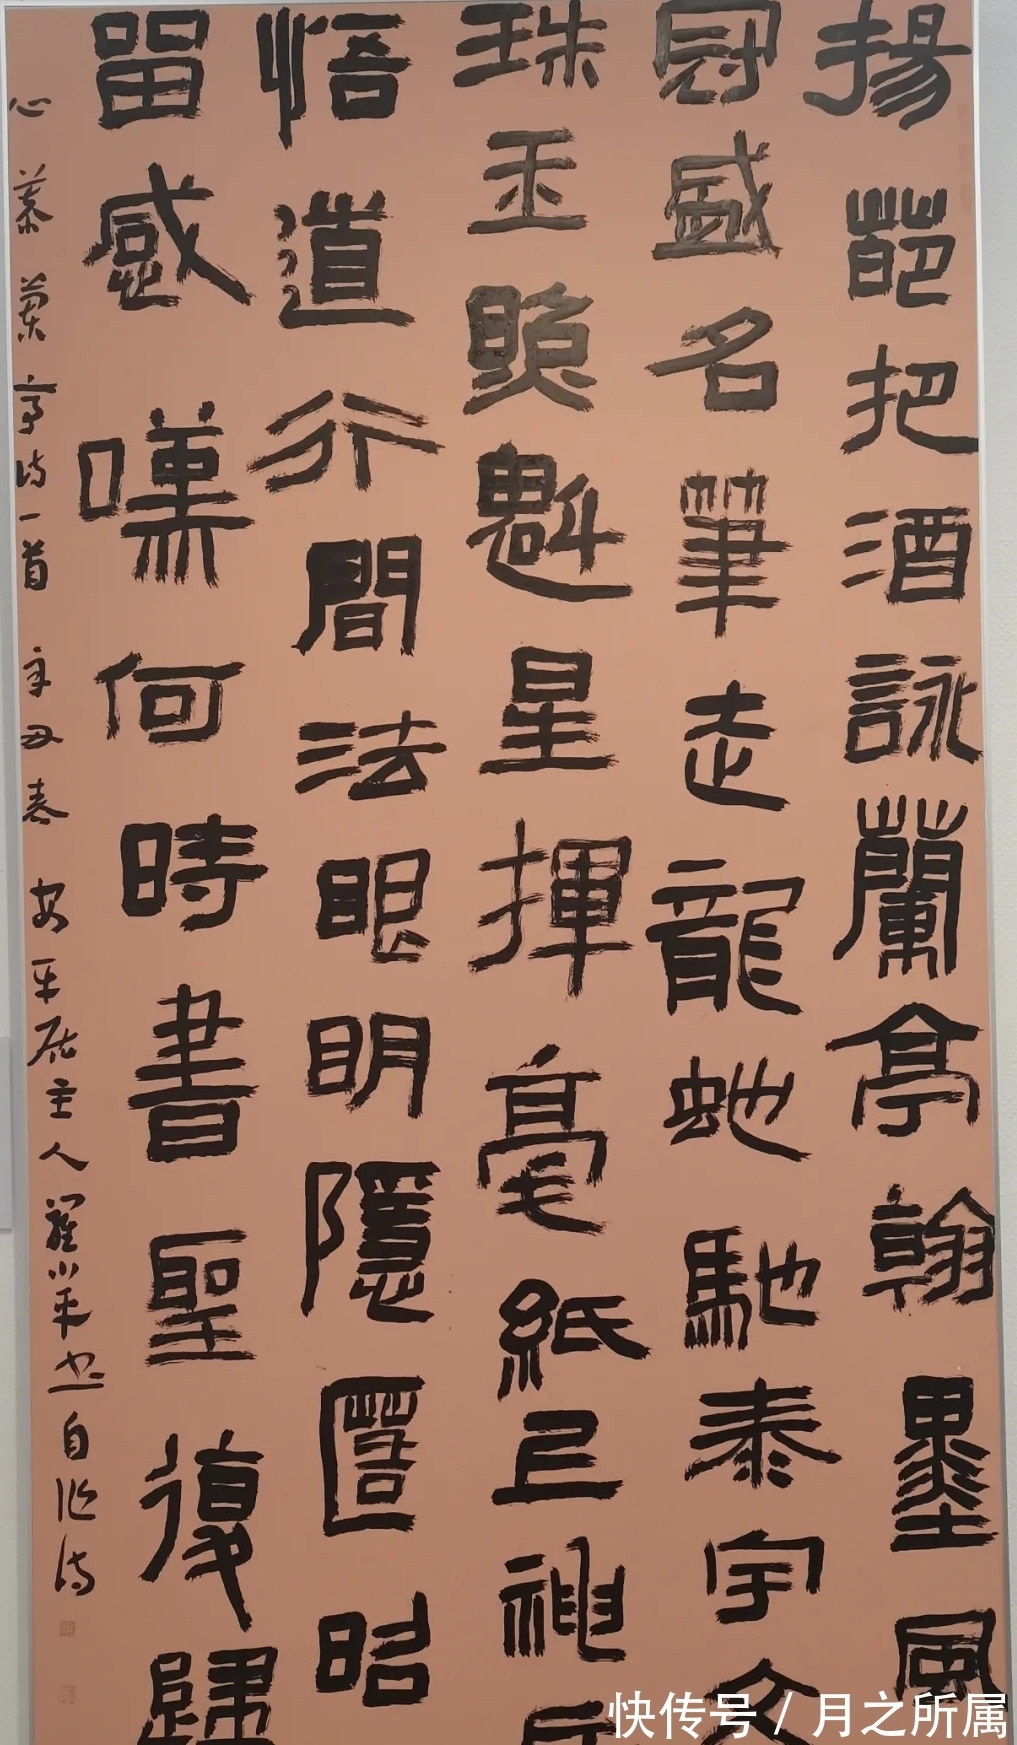 揚葩把酒詠蘭亭翰墨風
冠盛名筆走龍蛇馳泰宇文
珠玉顯魁星揮毫紙上神
悟道行間法眼明隱匿昭
留感嘆何時書聖復歸
心慕蘭亭詩一首 辛丑春 安平居主人 自作詩
快传号 / 月之所属